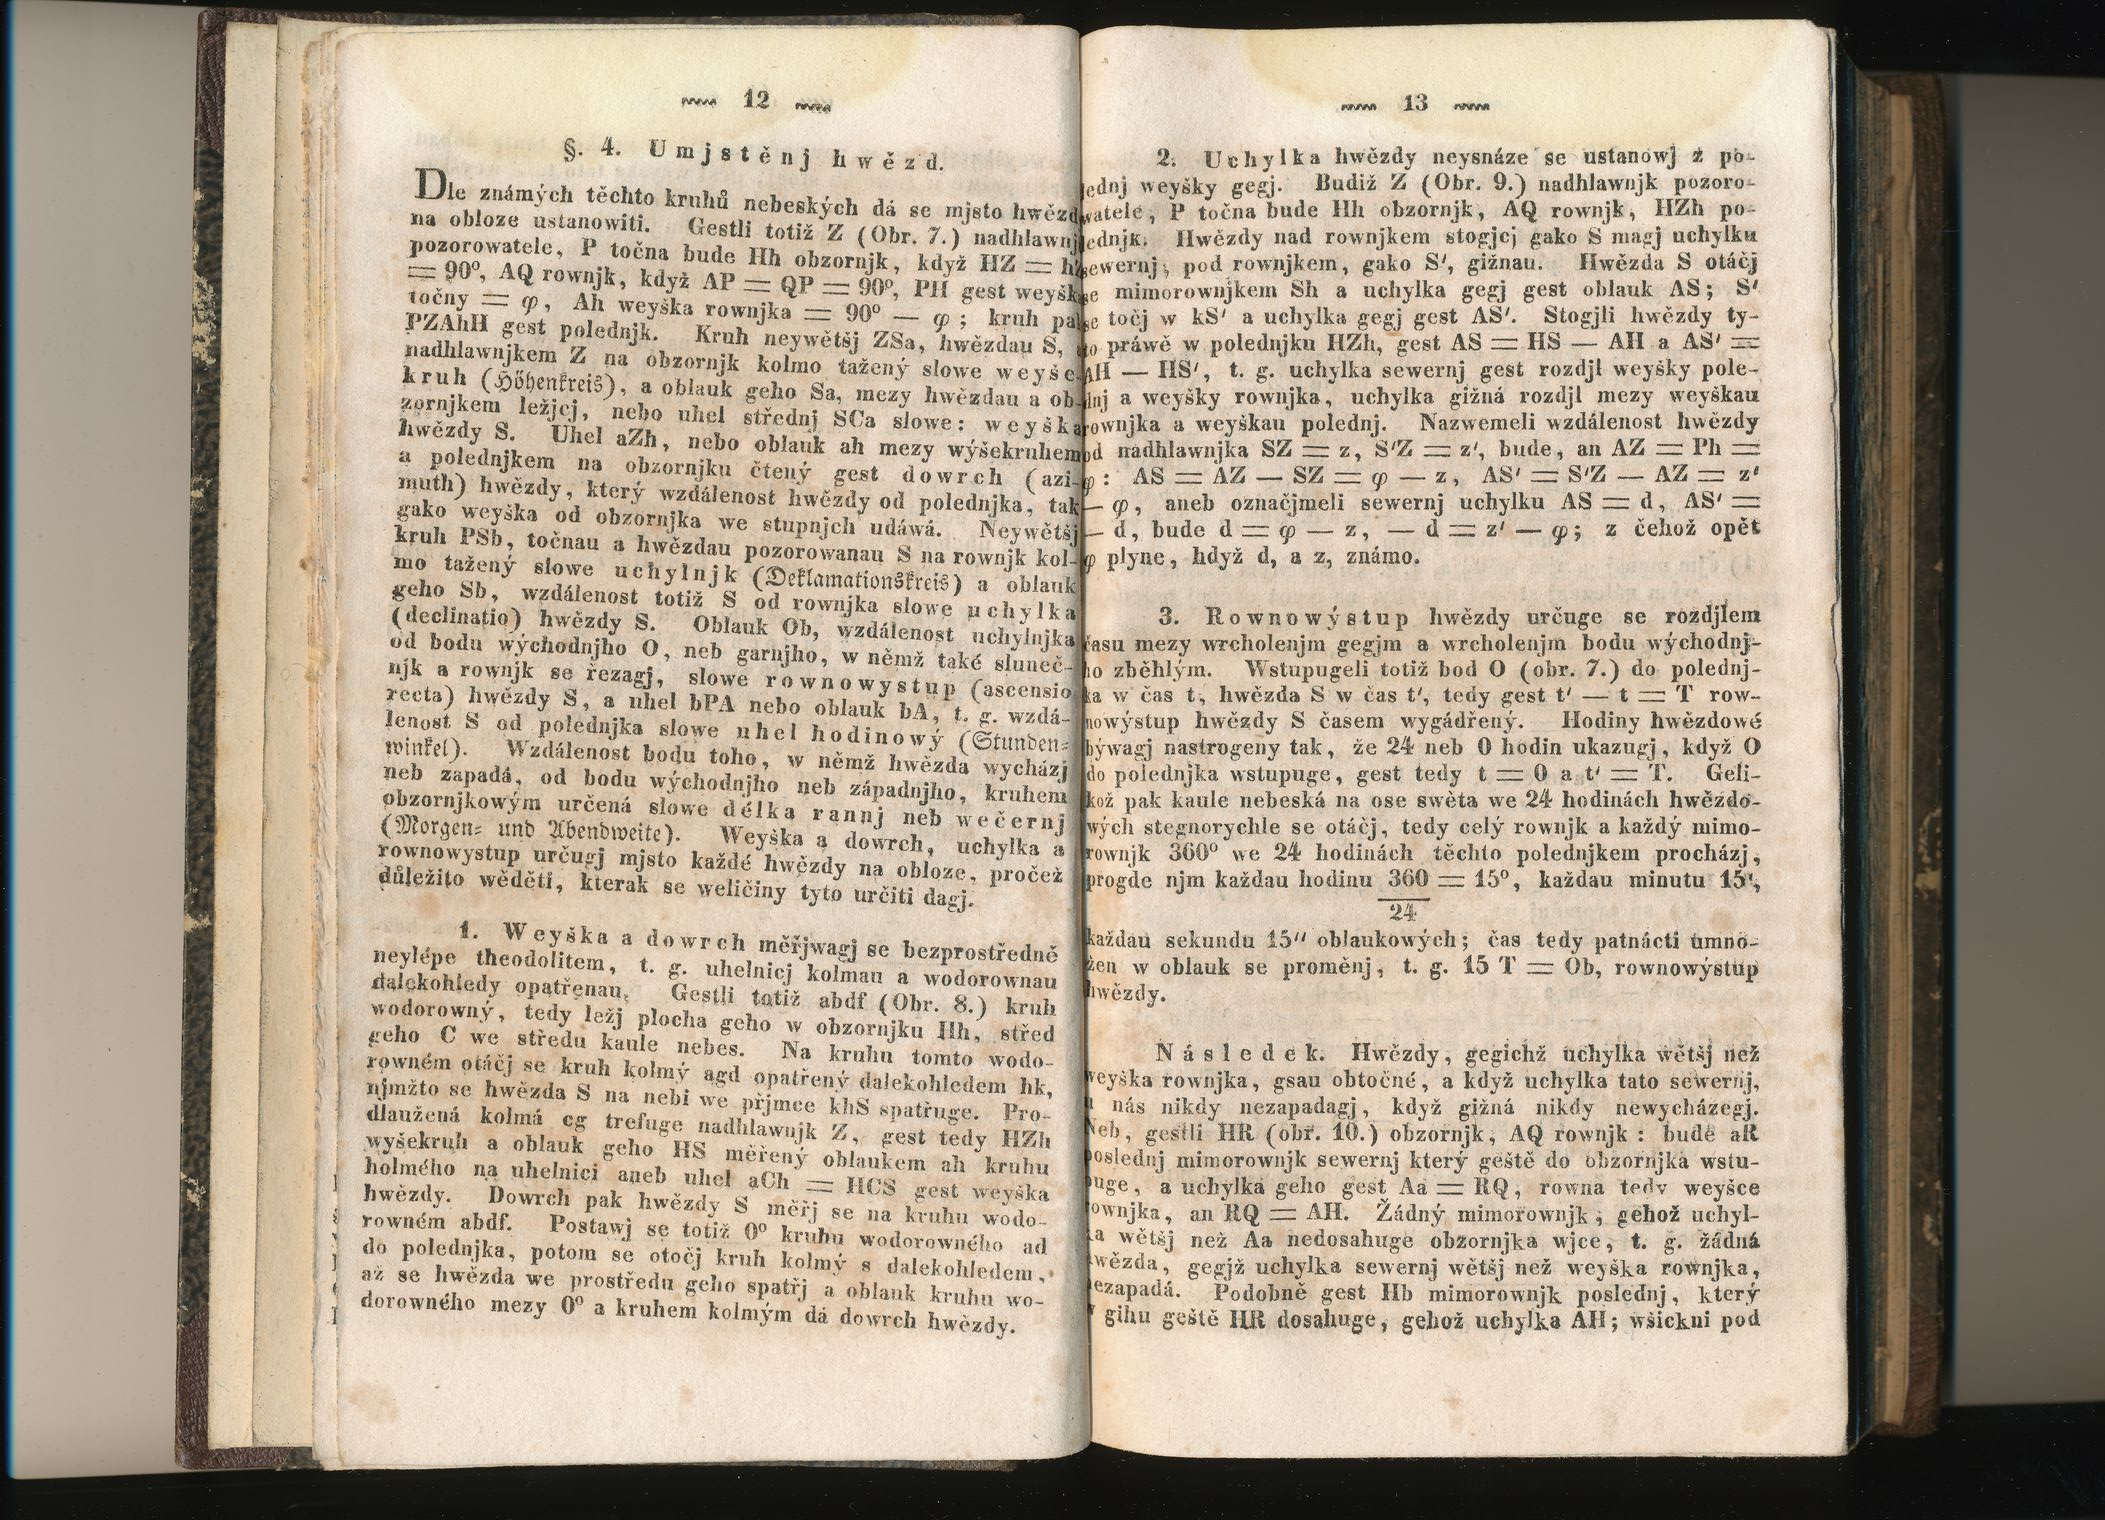 12
§. 4. Umjstěnj hwězd.
Dle známých těchto kruhů nebeských dá se mjsto hwězd
na obloze ustanowiti. Gestli totiž Z (Obr. 7.) nadhlawnj
pozorowatele, P točna bude Hh obzornjk, když HZ = hZ
= 90°, AQ rownjk, když AP = QP = 90°, PH gest weyška
točny = φ, Ah weyška rownjka = 90° — φ; kruh pak
PZAhH gest polednjk. Kruh neywětšj ZSa, hwězdau S,
nadhlawnjkem Z na obzornjk kolmo tažený slowe weyše-
kruh (Höhenkreis), a oblauk geho Sa, mezy hwězdau a ob-
zornjkem ležjcj, nebo uhel střednj SCa slowe: weyška
hwězdy S. Uhel aZh, nebo oblauk ah mezy wýšekruhem
a polednjkem na obzornjku čtený gest dowrch (azi-
muth) hwězdy, který wzdálenost hwězdy od polednjka, tak
gako weyška od obzornjka we stupnjch udáwá. Neywětšj
kruh PSb, točnau a hwězdau pozorowanau S na rownjk kol-
mo tažený slowe uchylnjk (Deklamationskreis) a oblauk
geho Sb, wzdálenost totiž S od rownjka slowe uchylka
(declinatio) hwězdy S. Oblauk Ob, wzdálenost uchylnjka
od bodu wýchodnjho O, neb garnjho, w němž také sluneč-
njk a rownjk se řezagj, slowe rownowystup (ascensio
recta) hwězdy S, a uhel bPA nebo oblauk bA, t. g. wzdá-
lenost S od polednjka slowe uhel hodinowý (Stunden-
winkel). Wzdálenost bodu toho, w němž hwězda wycházj
neb zapadá, od bodu wýchodnjho neb západnjho, kruhem
obzornjkowým určená slowe délka rannj neb wečernj
(Morgen- und Abendweite). Weyška a dowrch, uchylka a
rownowystup určugj mjsto každé hwězdy na obloze, pročež
důležito wěděti, kterak se weličiny tyto určiti dagj.
1. Weyška a dowrch měřjwagj se bezprostředně
neylépe theodolitem, t. g. uhelnicj kolmau a wodorownau
dalekohledy opatřenau. Gestli totiž abdf (Obr. 8.) kruh
wodorowný, tedy ležj plocha geho w obzornjku Hh, střed
geho C we středu kaule nebes. Na kruhu tomto wodo-
rowném otáčj se kruh kolmý agd opatřený dalekohledem hk,
njmžto se hwězda S na nebi we přjmce khS spatřuge. Pro-
dlaužená kolmá cg trefuge nadhlawnjk Z, gest tedy HZh
wyšekruh a oblauk geho HS měřený oblaukem ah kruhu
holmého na uhelnici aneb uhel aCh = HCS gest weyška
hwězdy. Dowrch pak hwězdy S měřj se na kruhu wodo-
rowném abdf. Postawj se totiž 0° kruhu wodorowného ad
do polednjka, potom se otočj kruh kolmý s dalekohledem,
až se hwězda we prostředu geho spatřj a oblauk kruhu wo-
dorowného mezy 0° a kruhem kolmým dá dowrch hwězdy.
13
2. Uchylka hwězdy neysnáze se ustanowj z po-
lednj weyšky gegj. Budiž Z (Obr. 9.) nadhlawnjk pozoro-
watele, P točna bude Hh obzornjk, AQ rownjk, HZh po-
lednjk. Hwězdy nad rownjkem stogjcj gako S magj uchylku
sewernj, pod rownjkem, gako S', gižnau. Hwězda S otáčj
se mimorownjkem Sh a uchylka gegj gest oblauk AS; S'
se točj w kS' a uchylka gegj gest AS'. Stogjli hwězdy ty-
to práwě w polednjku HZh, gest AS = HS — AH a AS' =
AH — HS', t. g. uchylka sewernj gest rozdjl weyšky pole-
dnj a weyšky rownjka, uchylka gižná rozdjl mezy weyškau
rownjka a weyškau polednj. Nazwemeli wzdálenost hwězdy
od nadhlawnjka SZ = z, S'Z = z', bude, an AZ = Ph =
φ: AS = AZ — SZ = φ — z, AS' = S'Z — AZ = z'
— φ, aneb označjmeli sewernj uchylku AS = d, AS' =
— d, bude d = φ — z, — d = z' — φ; z čehož opět
φ plyne, hdyž d, a z, známo.
3. Rownowýstup hwězdy určuge se rozdjlem
času mezy wrcholenjm gegjm a wrcholenjm bodu wýchodnj-
ho zběhlým. Wstupugeli totiž bod O (obr. 7.) do polednj-
ka w čas t, hwězda S w čas t', tedy gest t' — t = T row-
nowýstup hwězdy S časem wygádřený. Hodiny hwězdowé
býwagj nastrogeny tak, že 24 neb 0 hodin ukazugj, když O
do polednjka wstupuge, gest tedy t = 0 a t' = T. Geli-
kož pak kaule nebeská na ose swěta we 24 hodinách hwězdo-
wých stegnorychle se otáčj, tedy celý rownjk a každý mimo-
rownjk 360° we 24 hodinách těchto polednjkem procházj,
progde njm každau hodinu 360 = 15°, každau minutu 15',
24
každau sekundu 15'' oblaukowých; čas tedy patnácti umno-
žen w oblauk se proměnj, t. g. 15 T = Ob, rownowýstup
hwězdy.
Následek. Hwězdy, gegichž uchylka wětšj než
weyška rownjka, gsau obtočné, a když uchylka tato sewernj,
u nás nikdy nezapadagj, když gižná nikdy newycházegj.
Neb, gestli HR (obr. 10.) obzornjk, AQ rownjk: bude aR
poslednj mimorownjk sewernj který geště do obzornjka wstu-
puge, a uchylka geho gest Aa = RQ, rowna tedy weyšce
rownjka, an RQ = AH. Žádný mimorownjk, gehož uchyl-
ka wětšj než Aa nedosahuge obzornjka wjce, t. g. žádná
hwězda, gegjž uchylka sewernj wětšj než weyška rownjka,
nezapadá. Podobně gest Hb mimorownjk poslednj, který
w gihu geště HR dosahuge, gehož uchylka AH; wšickni pod